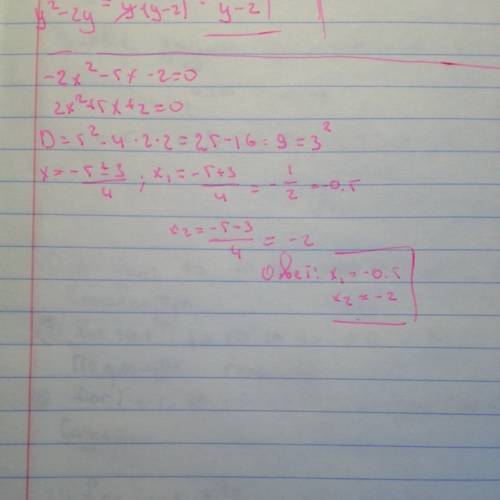 y²-2y = y(y-2) = y-2
-2x²-5x-2=0
2x²+5x+2=0
D=5²-4·2·2=25-16=9=3²
x=-5±3/4; x₁=-5+3/4=-1/2=-0.5
x₂=-5-3/4=-2
Ответ: x₁=-0.5
x₂=-2